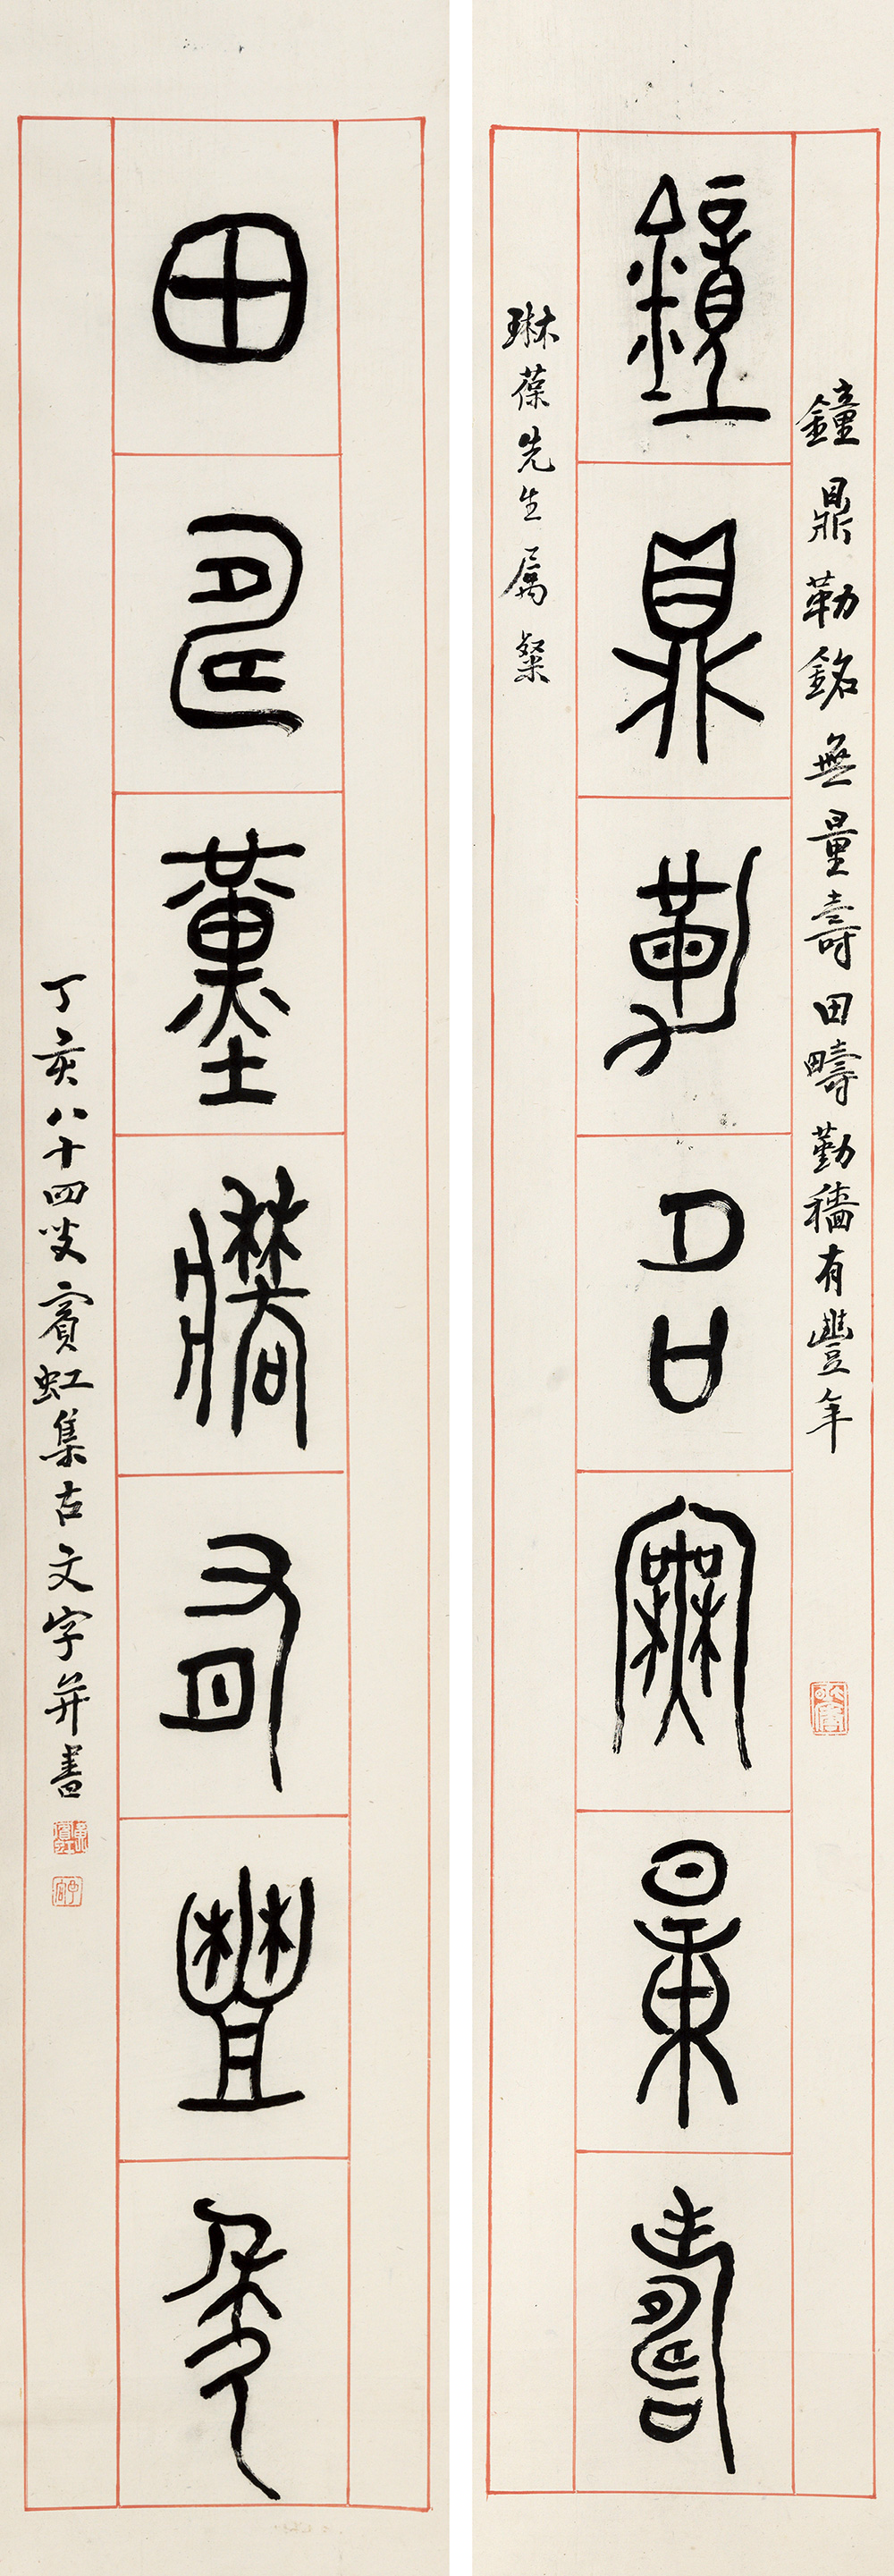 鐘鼎勒銘無量壽田疇勤穡有豐年
鐘鼎勒名無量壽
琳葆先生属粲
田疇勤穡有豐年
丁亥八十四叟賓虹集古文字并書